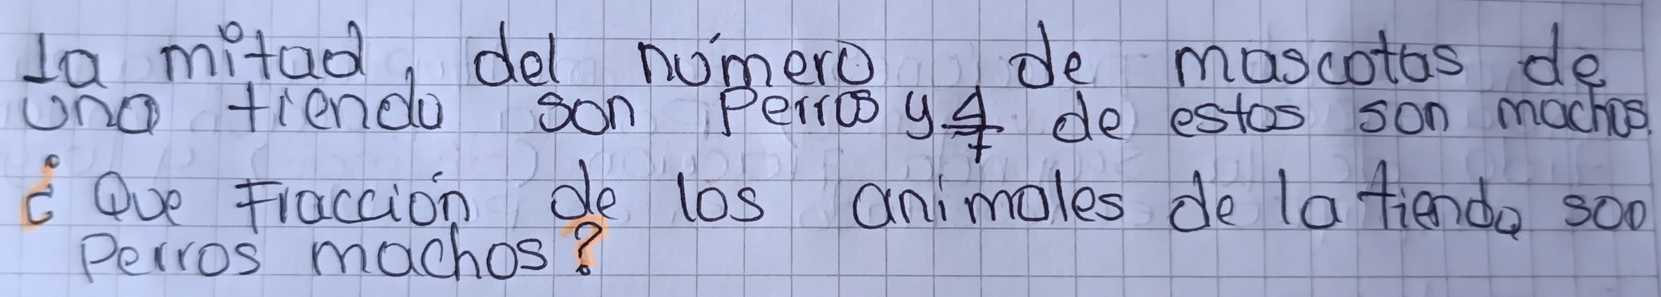 La mitad, del número de mascotas de
una tienda son Perros y 4/7 de estos son machos.
¿Que Fracción de los animales de la tienda son
Perros machos?